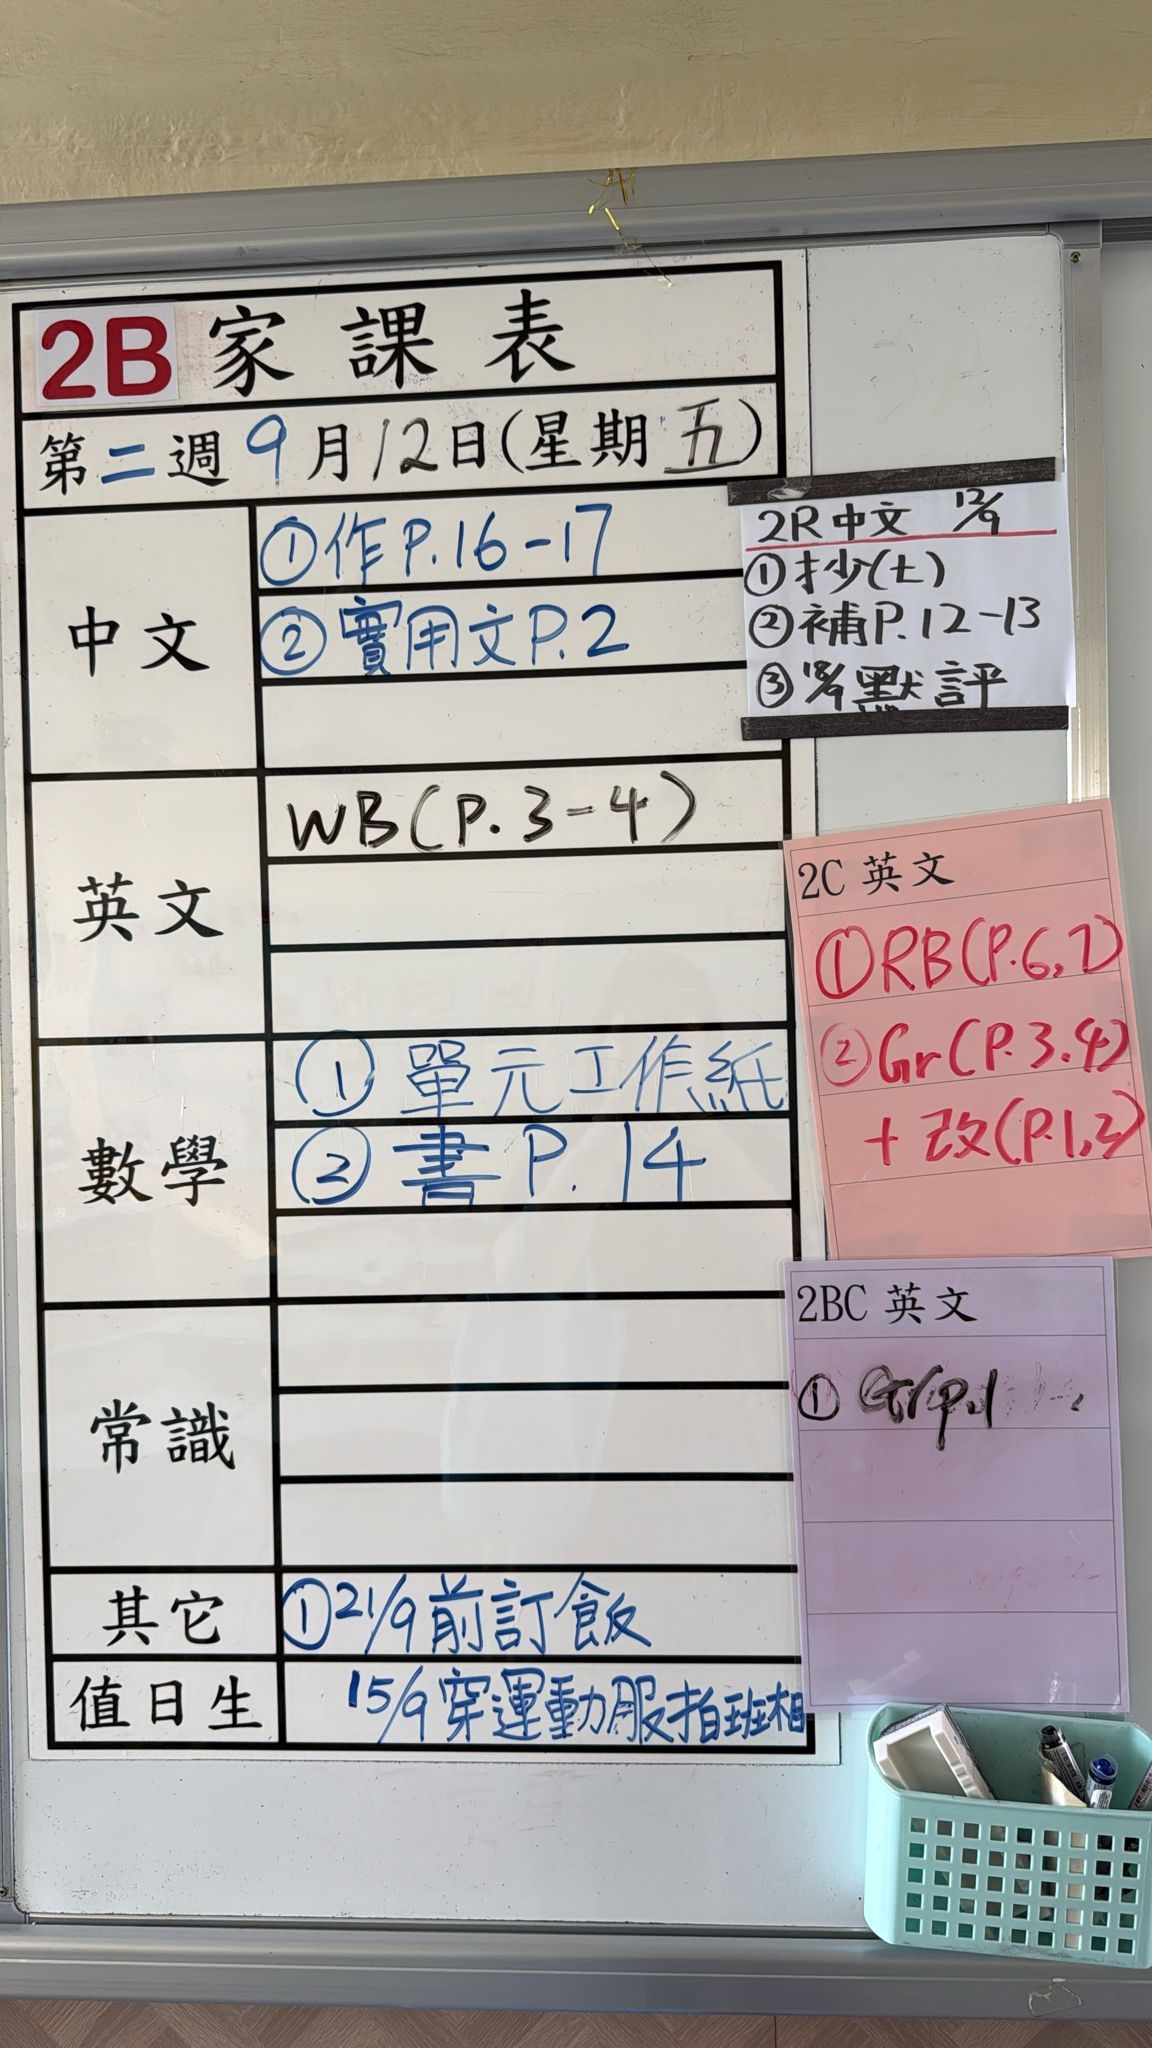 2B 家課表
第二週 9月12日(星期五)
中文
①作P.16-17
②實用文P.2
英文
WB(P.3-4)
數學
①單元工作紙
②書P.14
常識
其它
①21/9前訂飯
值日生
15/9穿運動服拍班相
2R中文 12/9
①抄(七)
②補P.12-13
③18/9默評
2C 英文
①RB(P.6,7)
②Gr(P.3.4)
+改(P.1,2)
2BC 英文
① Gr p.1